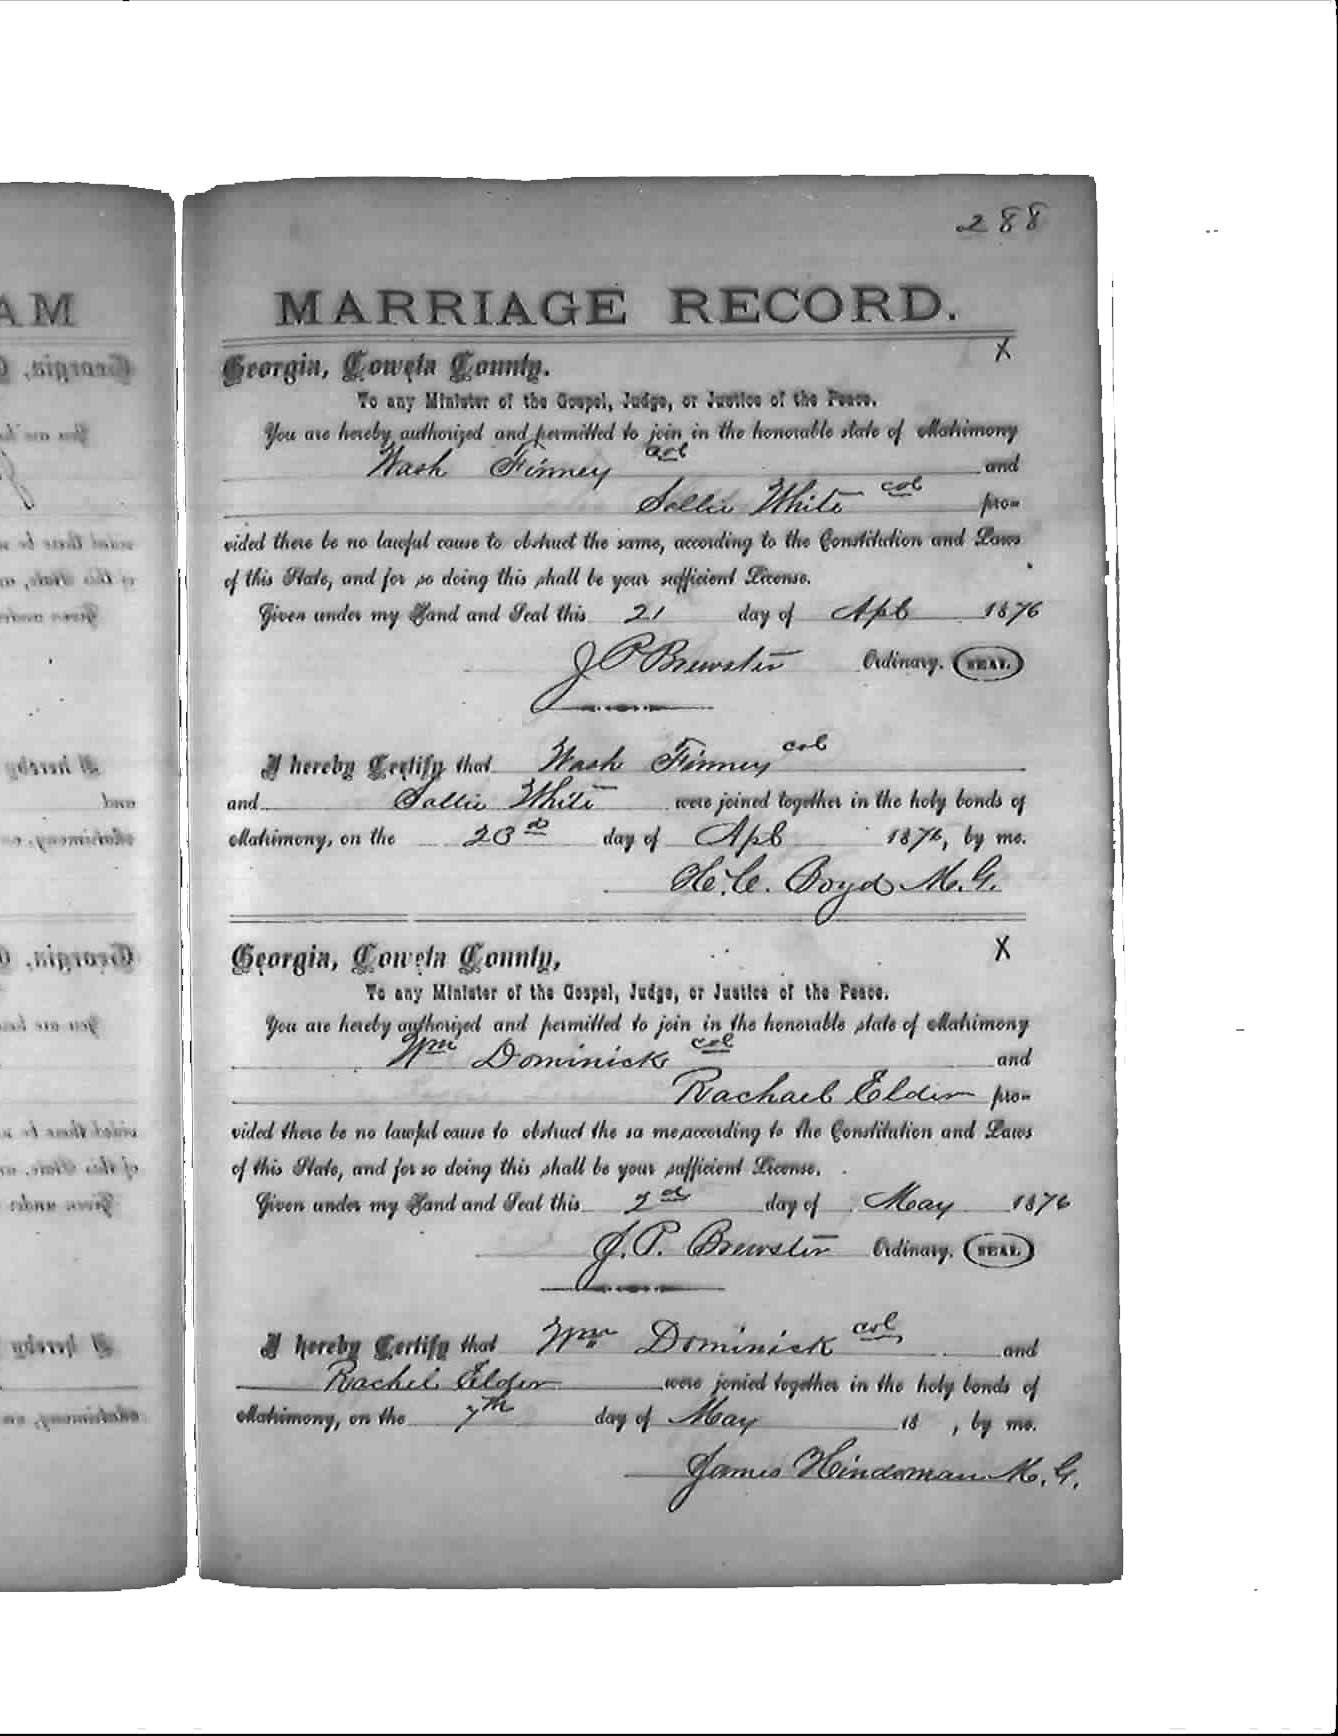 288
MARRIAGE RECORD.
X
Georgia, Coweta County.
To any Minister of the Gospel, Judge, or Justice of the Peace.
You are hereby authorized and permitted to join in the honorable state of Matrimony
Wash Finney col and
Sallie White col pro-
vided there be no lawful cause to obstruct the same, according to the Constitution and Laws
of this State, and for so doing this shall be your sufficient License.
Given under my Hand and Seal this 21 day of Apl 1876
J P Brewster Ordinary. SEAL
I hereby Certify that Wash Finney col
and Sallie White were joined together in the holy bonds of
Matrimony, on the 23d day of Apl 1876, by me.
H. C. Boyd M. G.
X
Georgia, Coweta County,
To any Minister of the Gospel, Judge, or Justice of the Peace.
You are hereby authorized and permitted to join in the honorable state of Matrimony
Wm Dominick col and
Rachael Elder pro-
vided there be no lawful cause to obstruct the sa me,according to the Constitution and Laws
of this State, and for so doing this shall be your sufficient License.
Given under my Hand and Seal this 2d day of May 1876
J. P. Brewster Ordinary. SEAL
I hereby Certify that Wm Dominick col and
Rachel Elder were jonied together in the holy bonds of
Matrimony, on the 7th day of May 18 , by me.
James Hindsman M. G.